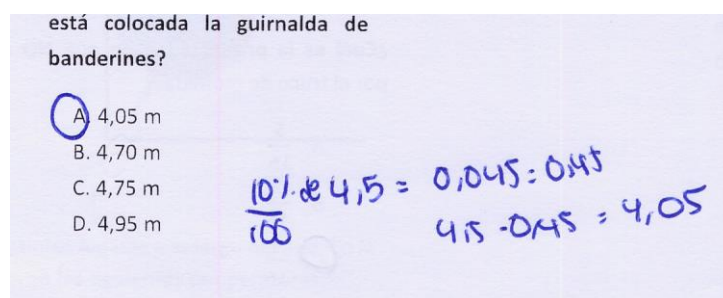 está colocada la guirnalda de
banderines?
A. 4,05 m
B. 4,70 m
C. 4,75 m
D. 4,95 m
10% de 4,5 = 0,045 = 0,45
100
4,5 - 0,45 = 4,05